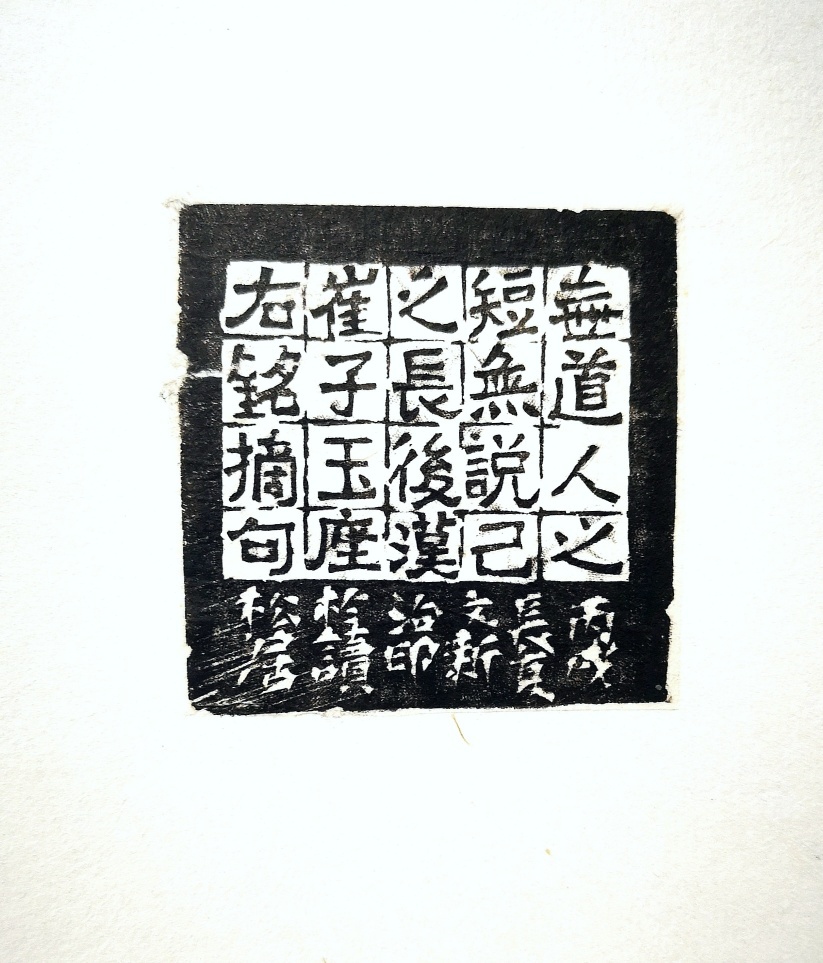 無道人之
短無説己
之長後漢
崔子玉座
右銘摘句
丙戌
長賀
文新
治印
讀
松居